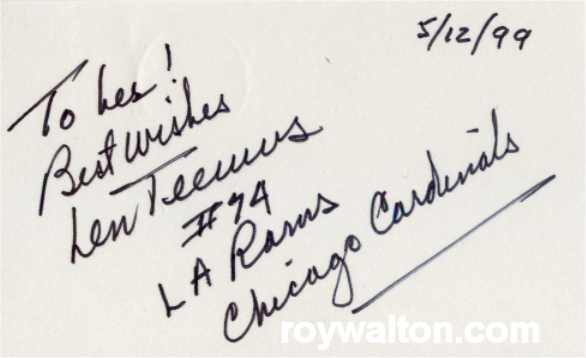 5/12/99
To Les!
Best Wishes
Len Teeuws
#74
LA Rams
Chicago Cardinals
roywalton.com